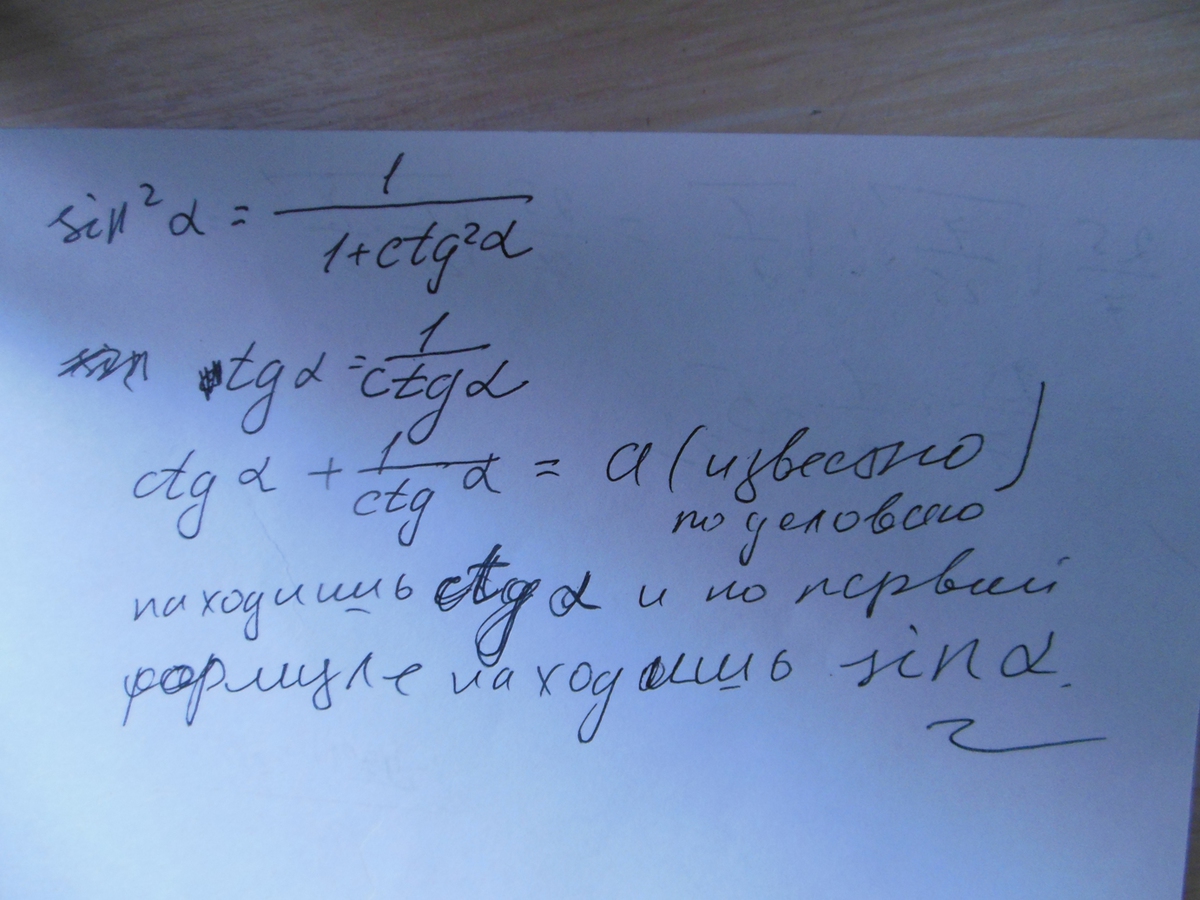 sin²α = 1/(1+ctg²α)
tgα = 1/(ctgα)
ctgα + 1/ctg α = a (известно)
по условию
находишь ctgα и по первой
формуле находишь sinα.